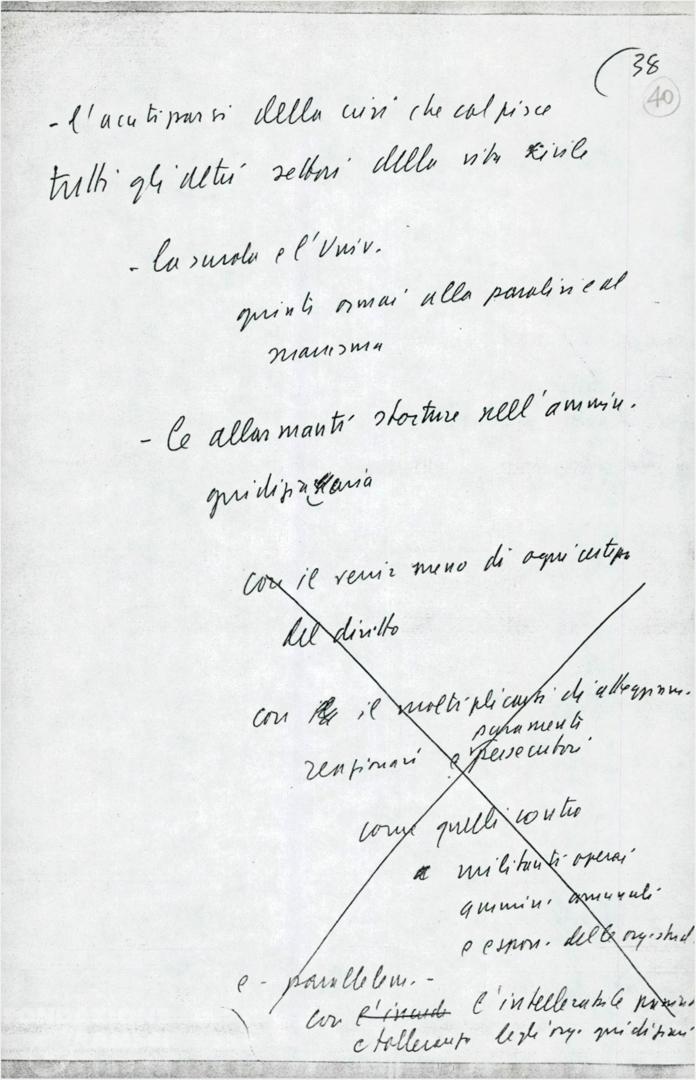 38
40
- l'acutizzarsi della crisi che colpisce
tutti gli altri settori della vita civile
- la scuola e l'Univ.
giunti ormai alla paralisi e al
marasma
- le allarmanti storture nell'ammin.
giudiziaria
con il venir meno di ogni certezza
del diritto
con il moltiplicarsi di atteggiam.
puramente
reazionari e persecutori
come quelli contro
militanti operai
ammin. comunali
e espon. delle org. stud.
e - parallelam. -
con l'intollerabile
e tolleranza degli org. giudiziari